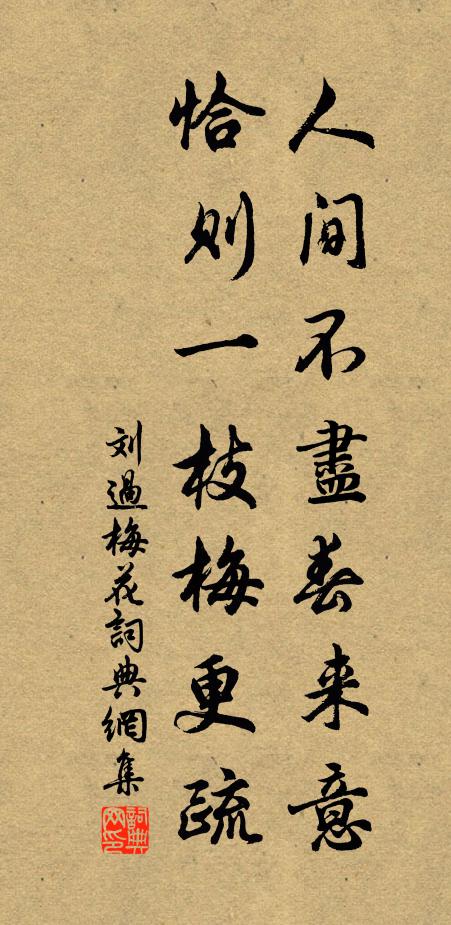 人间不盡春来意
恰则一枝梅更疏
刘過梅花詞典網集
詞典網印